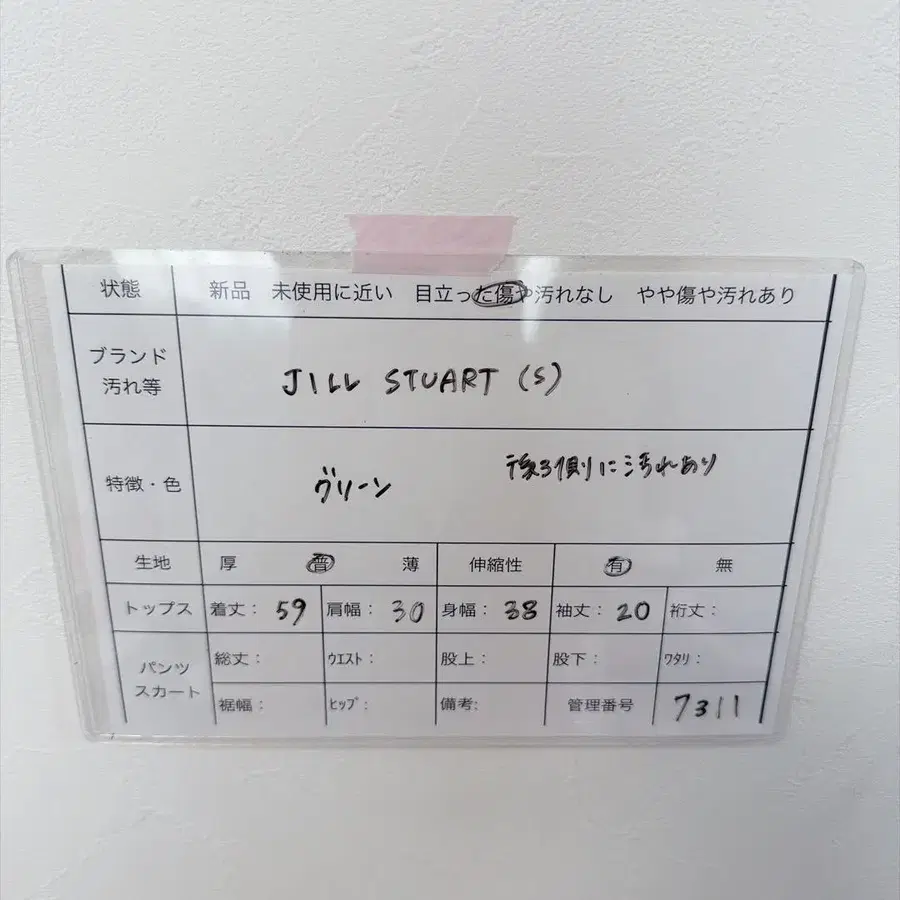 状態 新品 未使用に近い 目立った傷や汚れなし やや傷や汚れあり
ブランド
汚れ等
JILL STUART (S)
特徴・色
グリーン
後ろ側に汚れあり
生地 厚 普 薄 伸縮性 有 無
トップス 着丈: 59 肩幅: 30 身幅: 38 袖丈: 20 裄丈:
パンツ
スカート
総丈: ウエスト: 股上: 股下: ワタリ:
裾幅: ヒップ: 備考: 管理番号 7311